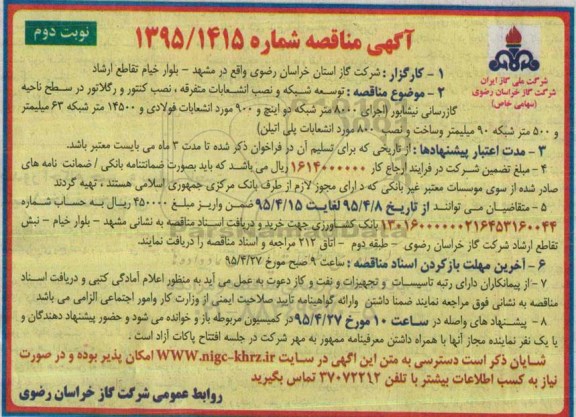 نوبت دوم
آگهی مناقصه شماره ۱۳۹۵/۱۴۱۵
شرکت ملی گاز ایران
شرکت گاز خراسان رضوی
(سهامی خاص)
۱ - کارگزار : شرکت گاز استان خراسان رضوی واقع در مشهد - بلوار خیام تقاطع ارشاد
۲ - موضوع مناقصه : توسعه شبکه و نصب انشعابات متفرقه ، نصب کنتور و رگلاتور در سطح ناحیه
گازرسانی نیشابور (اجرای ۸۰۰۰ متر شبکه دو اینچ و ۹۰۰ مورد انشعابات فولادی و ۱۴۵۰۰ متر شبکه ۶۳ میلیمتر
و ۵۰۰ متر شبکه ۹۰ میلیمتر وساخت و نصب ۸۰۰ مورد انشعابات پلی اتیلن)
۳ - مدت اعتبار پیشنهادها : از تاریخی که برای تسلیم آن در فراخوان ذکر شده تا مدت ۳ ماه می بایست معتبر باشد.
۴ - مبلغ تضمین شرکت در فرایند ارجاع کار ۱۶۱۴۰۰۰۰۰۰ ریال می باشد که باید بصورت ضمانتنامه بانکی / ضمانت نامه های
صادر شده از سوی موسسات معتبر غیر بانکی که دارای مجوز لازم از طرف بانک مرکزی جمهوری اسلامی هستند ، تهیه گردند
۵ - متقاضیان می توانند از تاریخ ۹۵/۴/۸ لغایت ۹۵/۴/۱۵ ضمن واریز مبلغ ۴۵۰۰۰۰ ریال به حساب شماره
بانک کشاورزی جهت خرید و دریافت اسناد مناقصه به نشانی مشهد - بلوار خیام - نبش
تقاطع ارشاد شرکت گاز خراسان رضوی - طبقه دوم - اتاق ۲۱۲ مراجعه و اسناد مناقصه را دریافت نمایند.
۶ - آخرین مهلت بازکردن اسناد مناقصه : ساعت ۹ صبح مورخ ۹۵/۴/۲۷
۷ - از پیمانکاران دارای رتبه تاسیسات و تجهیزات و نفت و گاز دعوت به عمل می آید به منظور اعلام آمادگی کتبی و دریافت اسناد
مناقصه به نشانی فوق مراجعه نمایند ضمنا داشتن وارائه گواهینامه تایید صلاحیت ایمنی از وزارت کار وامور اجتماعی الزامی می باشد
۸ - پیشنهاد های واصله در ساعت ۱۰ مورخ ۹۵/۴/۲۷ در کمیسیون مربوطه باز و خوانده می شود و حضور پیشنهاد دهندگان و
یا یک نفر نماینده مجاز آنها با همراه داشتن معرفینامه ممهور به مهر شرکت در جلسه افتتاح پاکات آزاد است .
شایان ذکر است دسترسی به متن این آگهی در سایت WWW.nigc-khrz.ir امکان پذیر بوده و در صورت
نیاز به کسب اطلاعات بیشتر با تلفن ۳۷۰۷۲۲۱۲ تماس بگیرید
روابط عمومی شرکت گاز خراسان رضوی